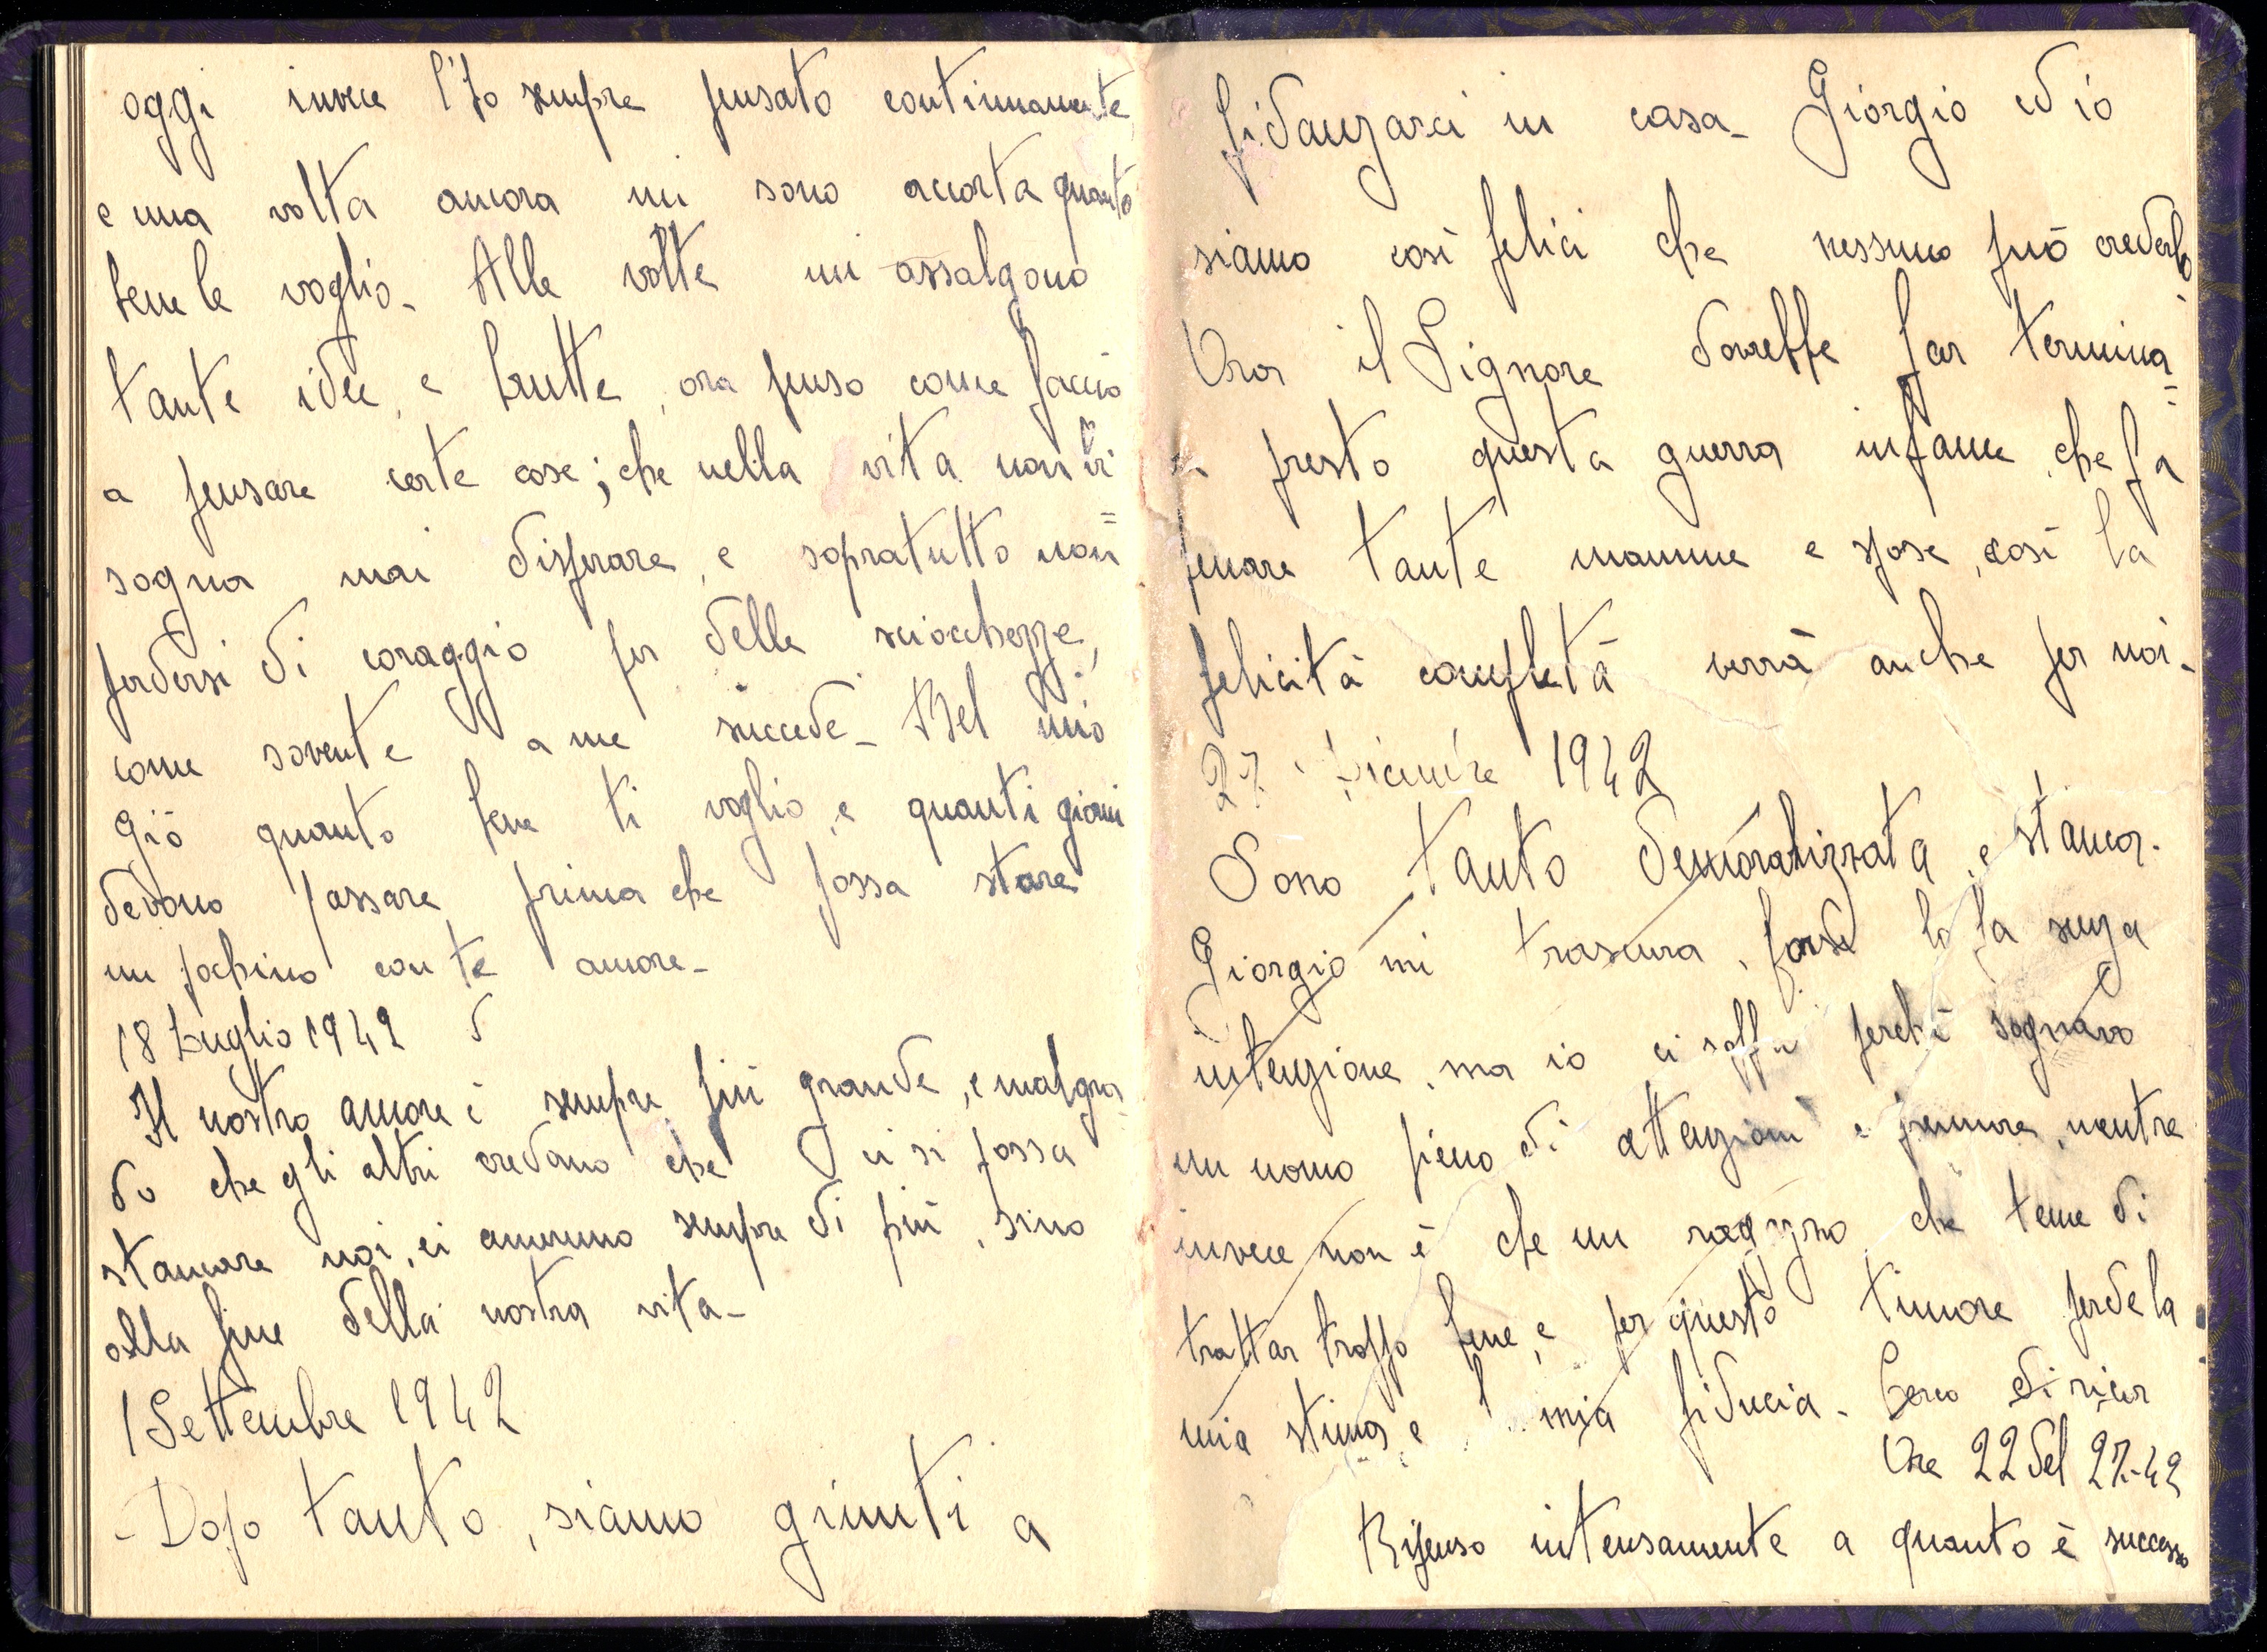 oggi invece l'ho sempre pensato continuamente,
e una volta ancora mi sono accorta quanto
bene le voglio. Alle volte mi assalgono
tante idee, e brutte, ora penso come faccio
a pensare certe cose; che nella vita non bi=
sogna mai disperare, e sopratutto non
perdersi di coraggio per delle sciocchezze,
come sovente a me succede. Bel mio
Giò quanto bene ti voglio, e quanti giorni
devono passare prima che possa stare
un pochino con te amore.
18 Luglio 1942
Il nostro amore è sempre più grande, e malgra
do che gli altri credano che ci si possa
stancare noi, ci ameremo sempre di più, sino
alla fine della nostra vita.
1 Settembre 1942
Dopo tanto, siamo giunti a
fidanzarci in casa. Giorgio ed io
siamo così felici che nessuno può crederlo.
Ora il Signore dovrebbe far termina=
re presto questa guerra infame, che fa
penare tante mamme e spose, così la
felicità completa verrà anche per noi.
27 Dicembre 1942
Sono tanto demoralizzata, e stanca.
Giorgio mi trascura, forse lo fa senza
intenzione, ma io ci soffro perchè sognavo
un uomo pieno di attenzioni e premure, mentre
invece non è che un ragazzo che teme di
trattar troppo bene, e per questo timore perde la
mia stima e la mia fiducia. Cerco di
Ore 22 del 27-42
Ripenso intensamente a quanto è successo